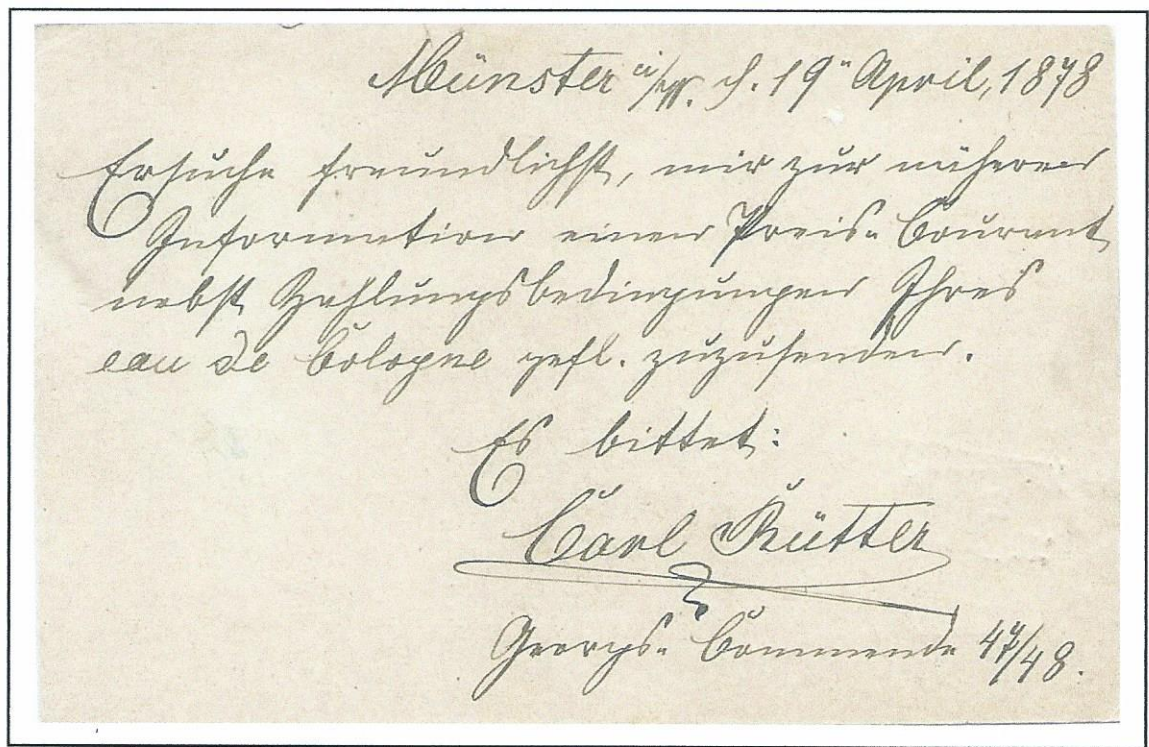 Münster i/W. d. 19" April, 1878
Ersuche freundlichst, mir zur näheren
Information einen Preis-Courant
nebst Zahlungsbedingungen Ihres
eau de Cologne gefl. zuzusenden.
Es bittet:
Carl Rütter
Georgs-Commende 47/48.